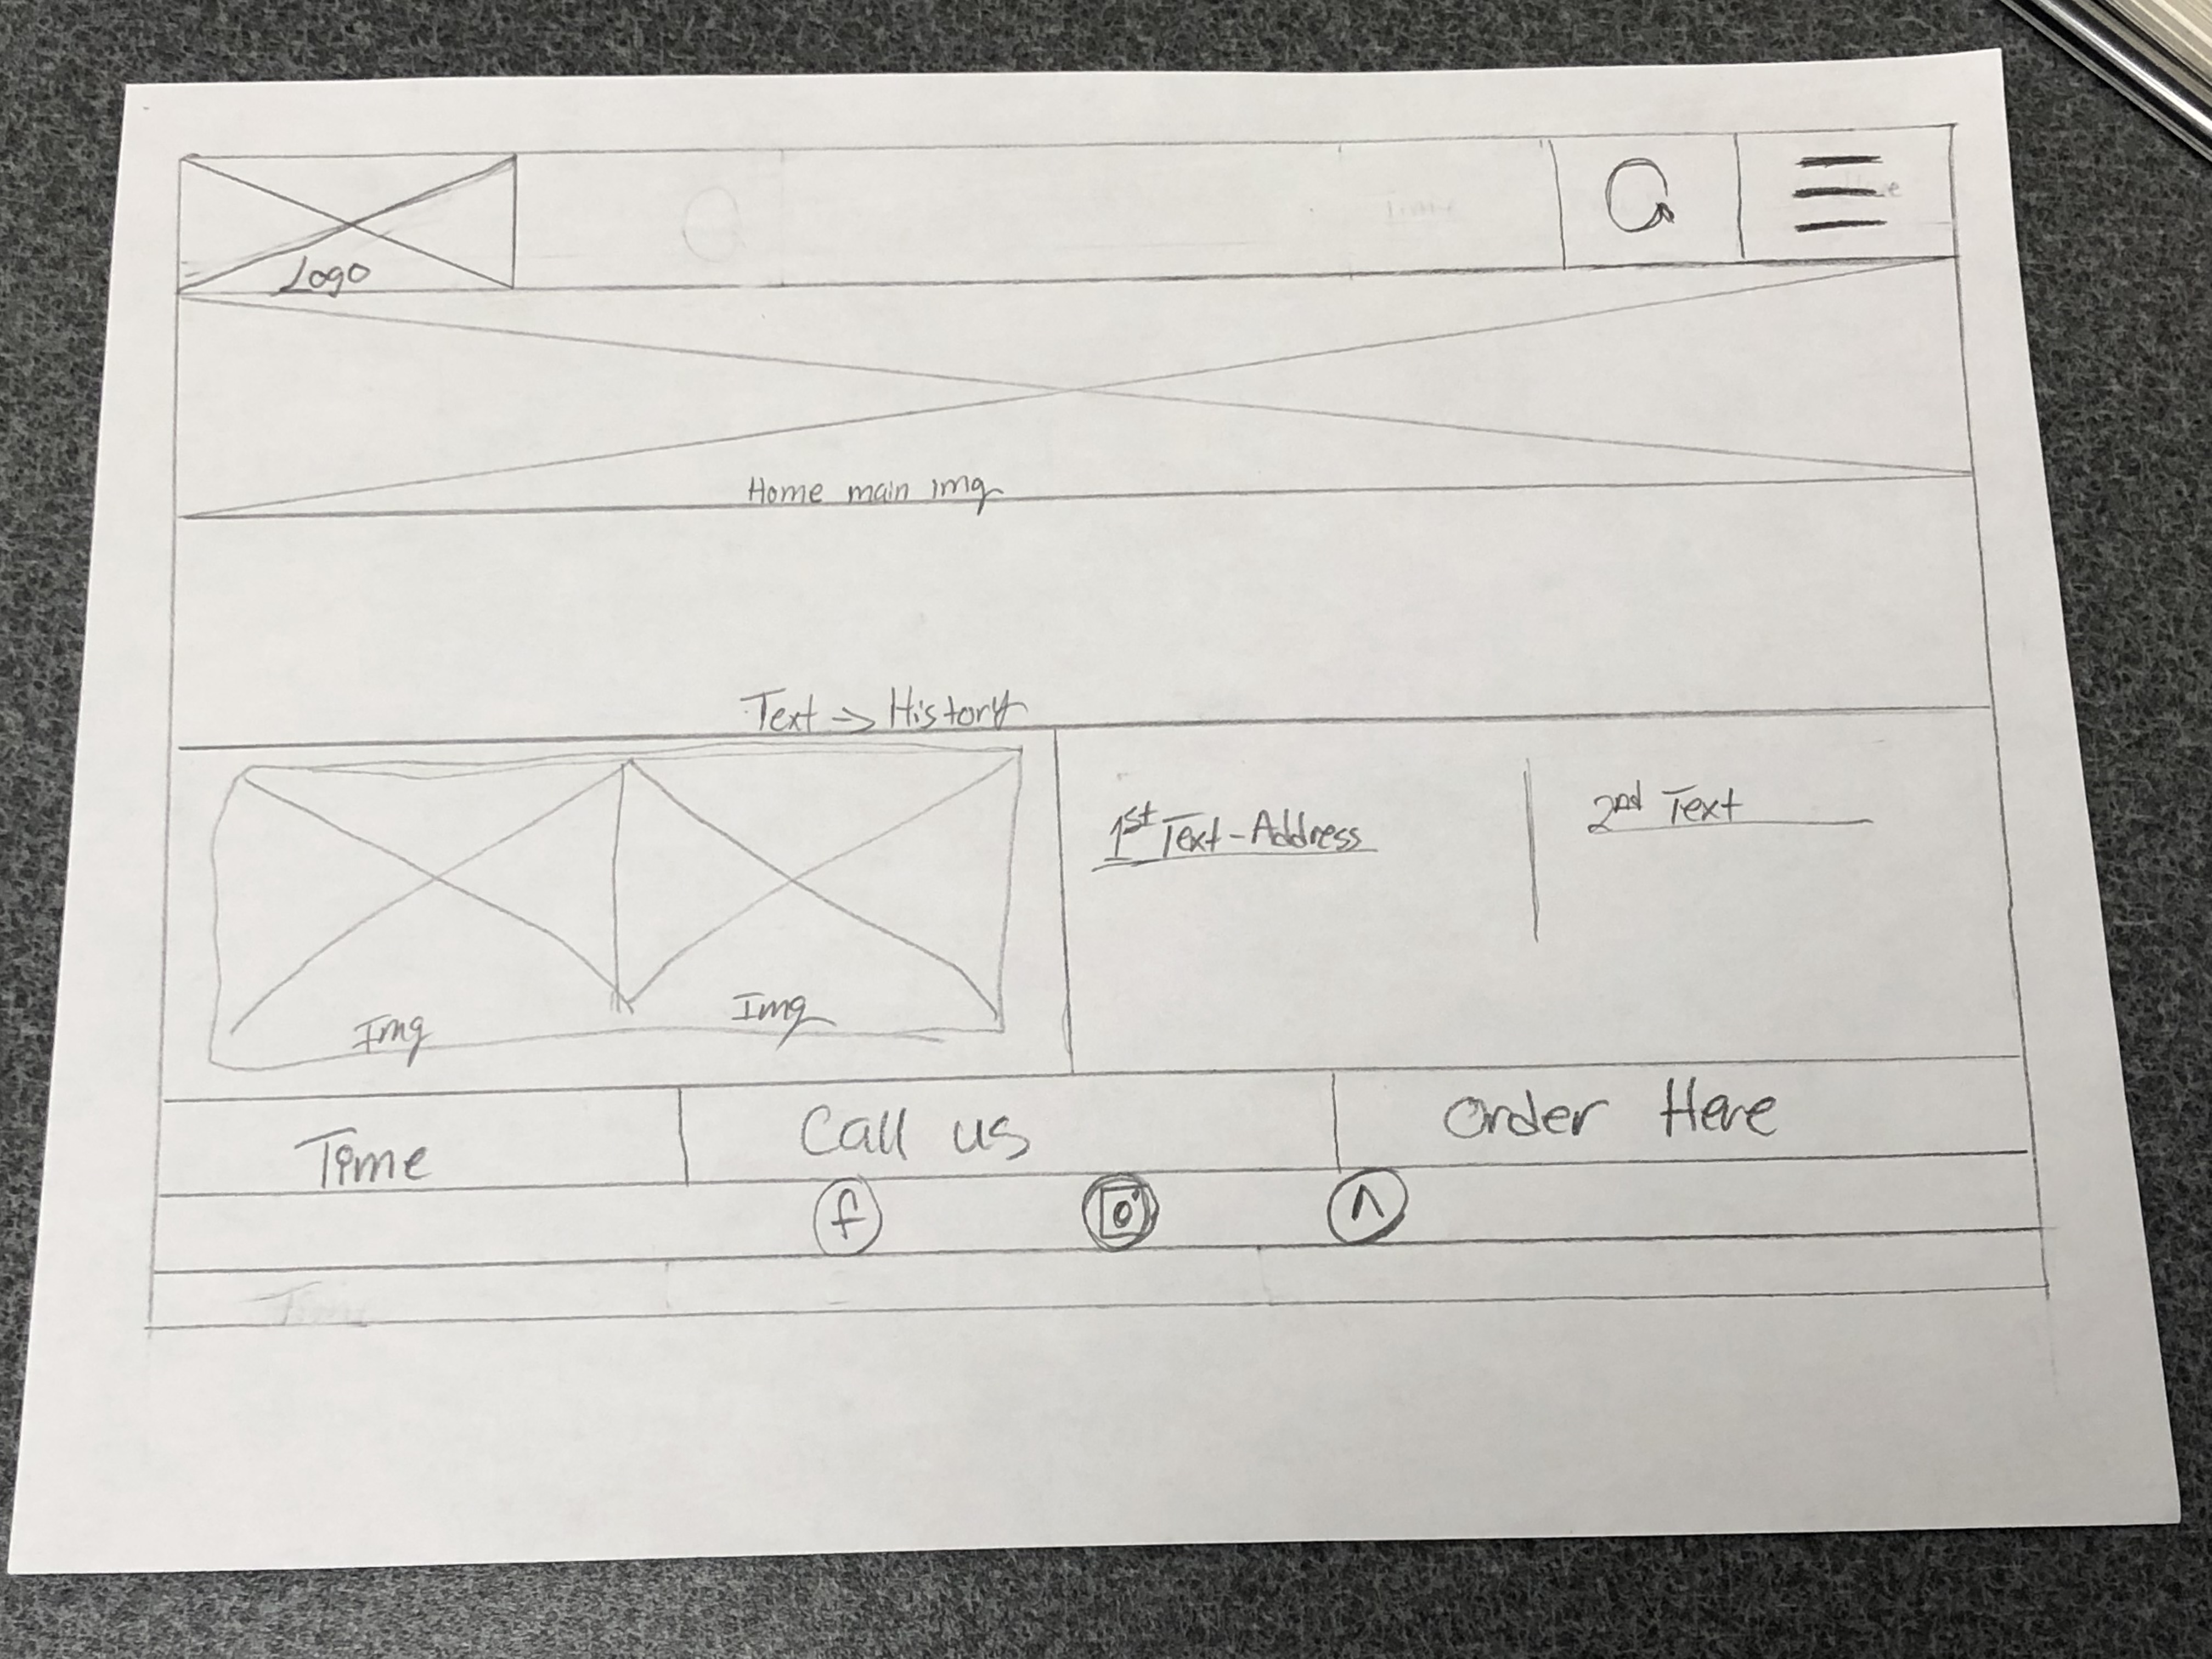 Logo
Home main img
Text -> History
Img
Img
1st Text - Address
2nd Text
Time
Call us
Order Here
f